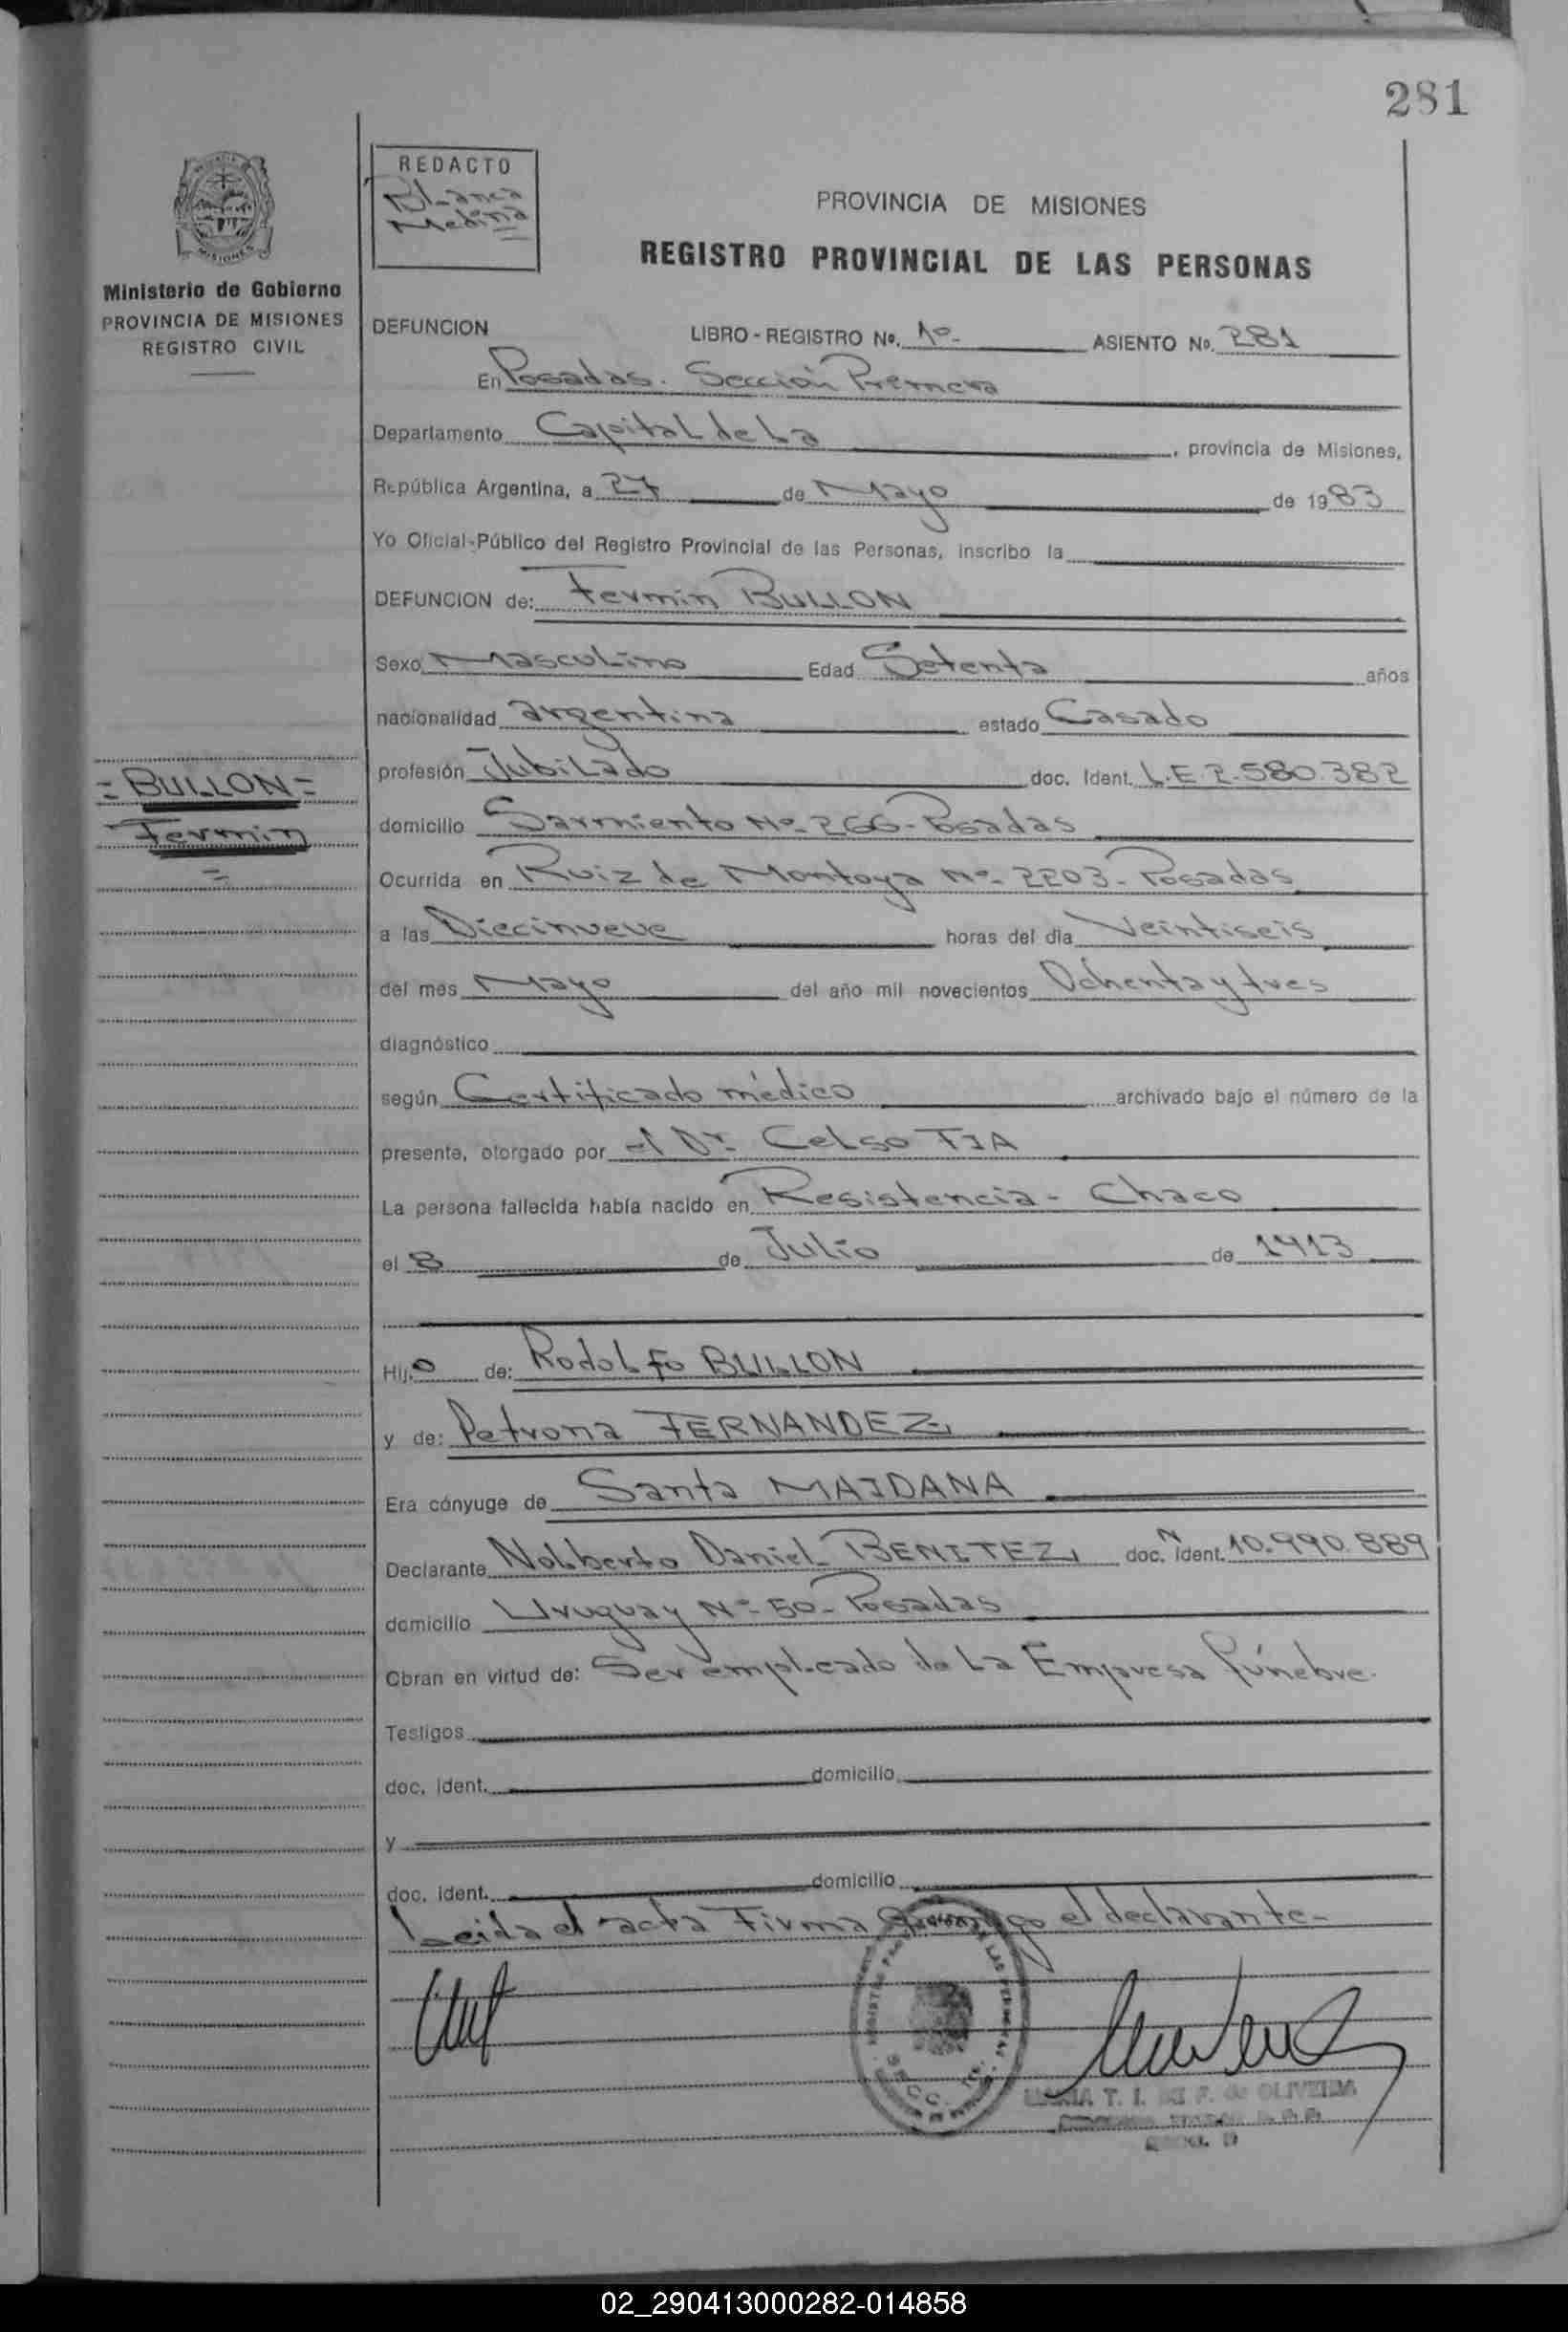 281
REDACTO
Blanca
Medina
PROVINCIA DE MISIONES
REGISTRO PROVINCIAL DE LAS PERSONAS
MISIONES
Ministerio de Gobierno
PROVINCIA DE MISIONES
REGISTRO CIVIL
DEFUNCION LIBRO - REGISTRO No. 1º- ASIENTO No. 281
En Posadas. Sección Primera
Departamento Capital de La , provincia de Misiones,
República Argentina, a 27 de Mayo de 1983
Yo Oficial-Público del Registro Provincial de las Personas, inscribo la
DEFUNCION de: Fermin BULLON
Sexo Masculino Edad Setenta años
nacionalidad argentina estado Casado
profesión Jubilado doc. Ident. L.E.2.580.382
= BULLON =
Fermin
=
domicilio Sarmiento Nº- 266- Posadas
Ocurrida en Ruiz de Montoya Nº- 2203- Posadas
a las Diecinueve horas del día Veintiseis
del mes Mayo del año mil novecientos Ochenta y tres
diagnóstico
según Certificado médico archivado bajo el número de la
presente, otorgado por el Dr. Celso TJA
La persona fallecida había nacido en Resistencia - Chaco
el 8 de Julio de 1913
Hijo de: Rodolfo BULLON
y de: Petrona FERNANDEZ,
Era cónyuge de Santa MAJDANA
Declarante Nolberto Daniel BENITEZ, doc. N ident. 10.990.889
domicilio Uruguay Nº- 50- Posadas
Obran en virtud de: Ser empleado de La Empresa Fúnebre.
Testigos
doc. ident. domicilio
y
doc. ident. domicilio
Leida el acta Firma el declarante-
T. I. F. de OLIVEIRA
02_290413000282-014858